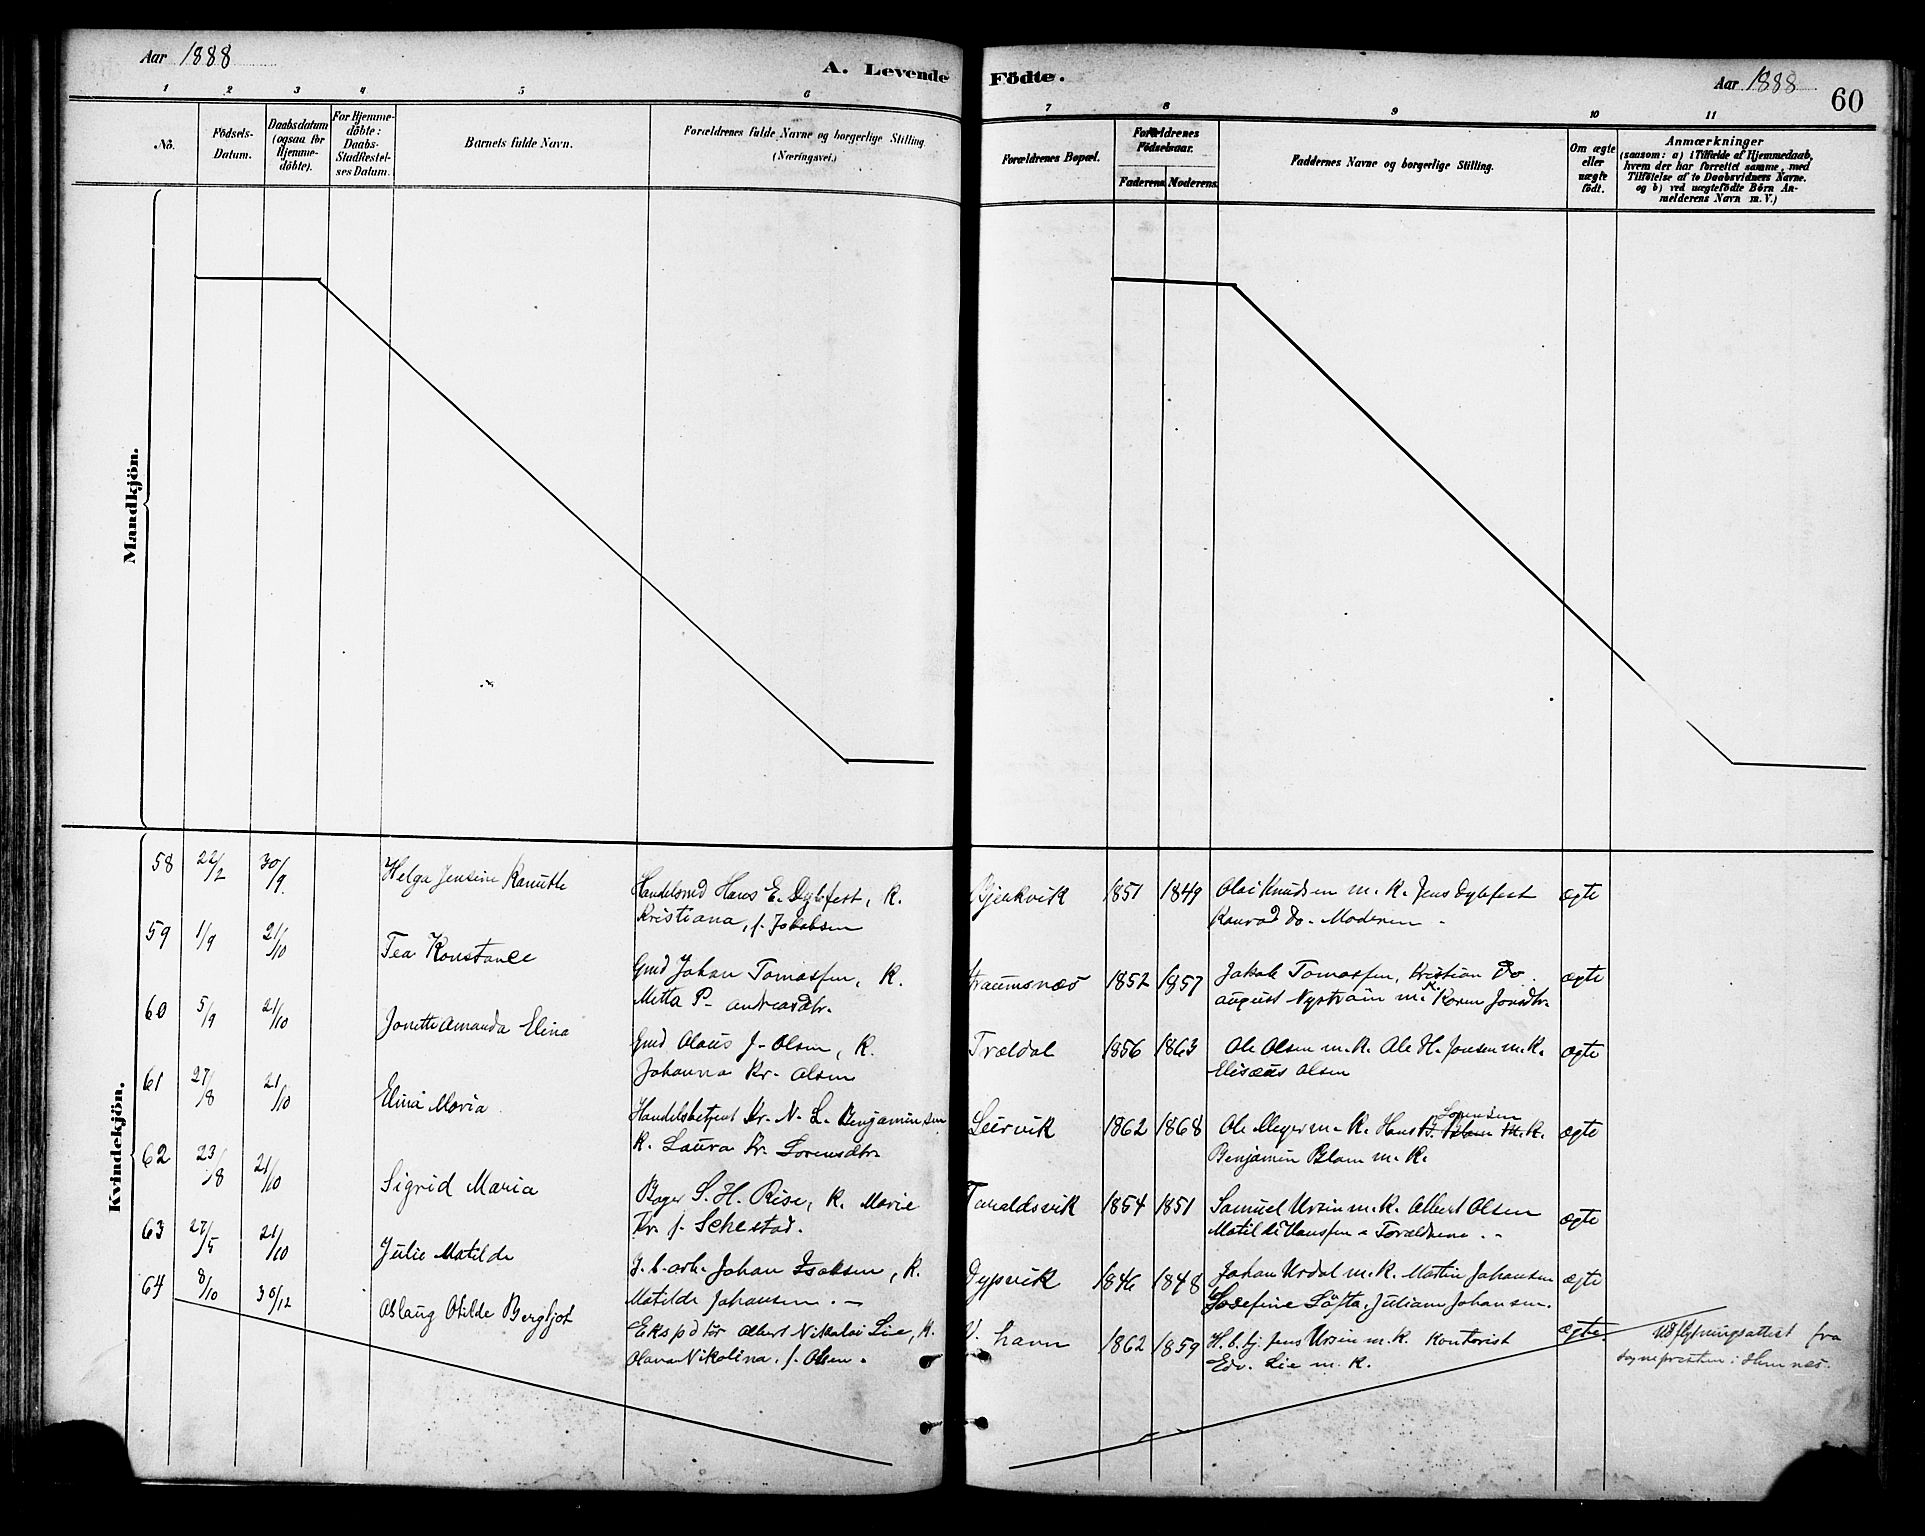 Aar 1888
A. Levende Födte.
Aar 1888
60
1 2 3 4 5 6 7 8 9 10 11
No.
Födsels-Datum.
Daabsdatum (ogsaa for Hjemme-döbte).
For Hjemme-döbte: Daabs-Stadfestel-ses Datum.
Barnets fulde Navn.
Forældrenes fulde Navne og borgerlige Stilling. (Næringsvei.)
Forældrenes Bopæl.
Forældrenes Födselsaar.
Faderens. Moderens.
Faddernes Navne og borgerlige Stilling.
Om ægte eller uægte födt.
Anmærkninger
(saasom: a) i Tilfælde af Hjemmedaab,
hvem der har forrettet samme, med
Tilföielse af to Daabsvidners Navne.
og b) ved uægtefödte Börn An-
melderens Navn m.V.)
Mandkjön.
Kvindekjön.
58 22/2 30/9. Helga Jensine Ranuthe
Handelsmd Hans E. Dybfest, K.
Kristiana, f. Jakobsen
Bjerkvik 1851 1849
Olai Knudsen m. K. Jens Dybfest
Konrad do. Moderen
ægte
59 1/9 21/10 Tea Konstance
Gmd Johan Tomassen, K.
Metta P. Andreasdtr.
Straumsnæs 1852 1857
Jakob Tomassen, Kristian do.
August Nyström m. K. Karen Jonsdtr.
ægte
60 5/9 21/10 Jonette Amanda Elina
Gmd Olaus J. Olsen, K.
Johanna Kr. Olsen
Trældal 1856 1863
Ole Olsen m. K. Ole H. Jensen m. K.
Elisæus Olsen
ægte
61 27/8 21/10 Elina Maria
Handelsbetjent Kr. N. L. Benjaminsen
K. Laura Kr. Sorensdtr.
Leirvik 1862 1868
Ole Meyer m. K. Hans Sørensen m. K.
Benjamin Blom m. K.
ægte
62 23/8 21/10 Sigrid Maria
Bager S. H. Rise, K. Marie
Kr. f. Sehestad.
Taraldsvik 1854 1851
Samuel Ursin m. K. Albert Olsen
Matilde Hanssen. Forældrene.
ægte
63 27/5 21/10 Julie Matilde
J. b. arb. Johan Isaksen, K.
Matilde Johansen.
Dypvik 1846 1848
Johan Urdal m. K. Martin Johansen
Josefine Lofta, Juliane Johansen.
ægte
64 8/10 30/12 Aslaug Otilde Bergljot
Ekspditör Albert Nikolai Lie, K.
Olava Nikolina, f. Olsen.
V. havn 1862 1859
H. b. bj. Jens Ursin m. K. Kontorist
Edv. Lie m. K.
ægte
Udflytningsattest fra
sognepresten i Hemnes.